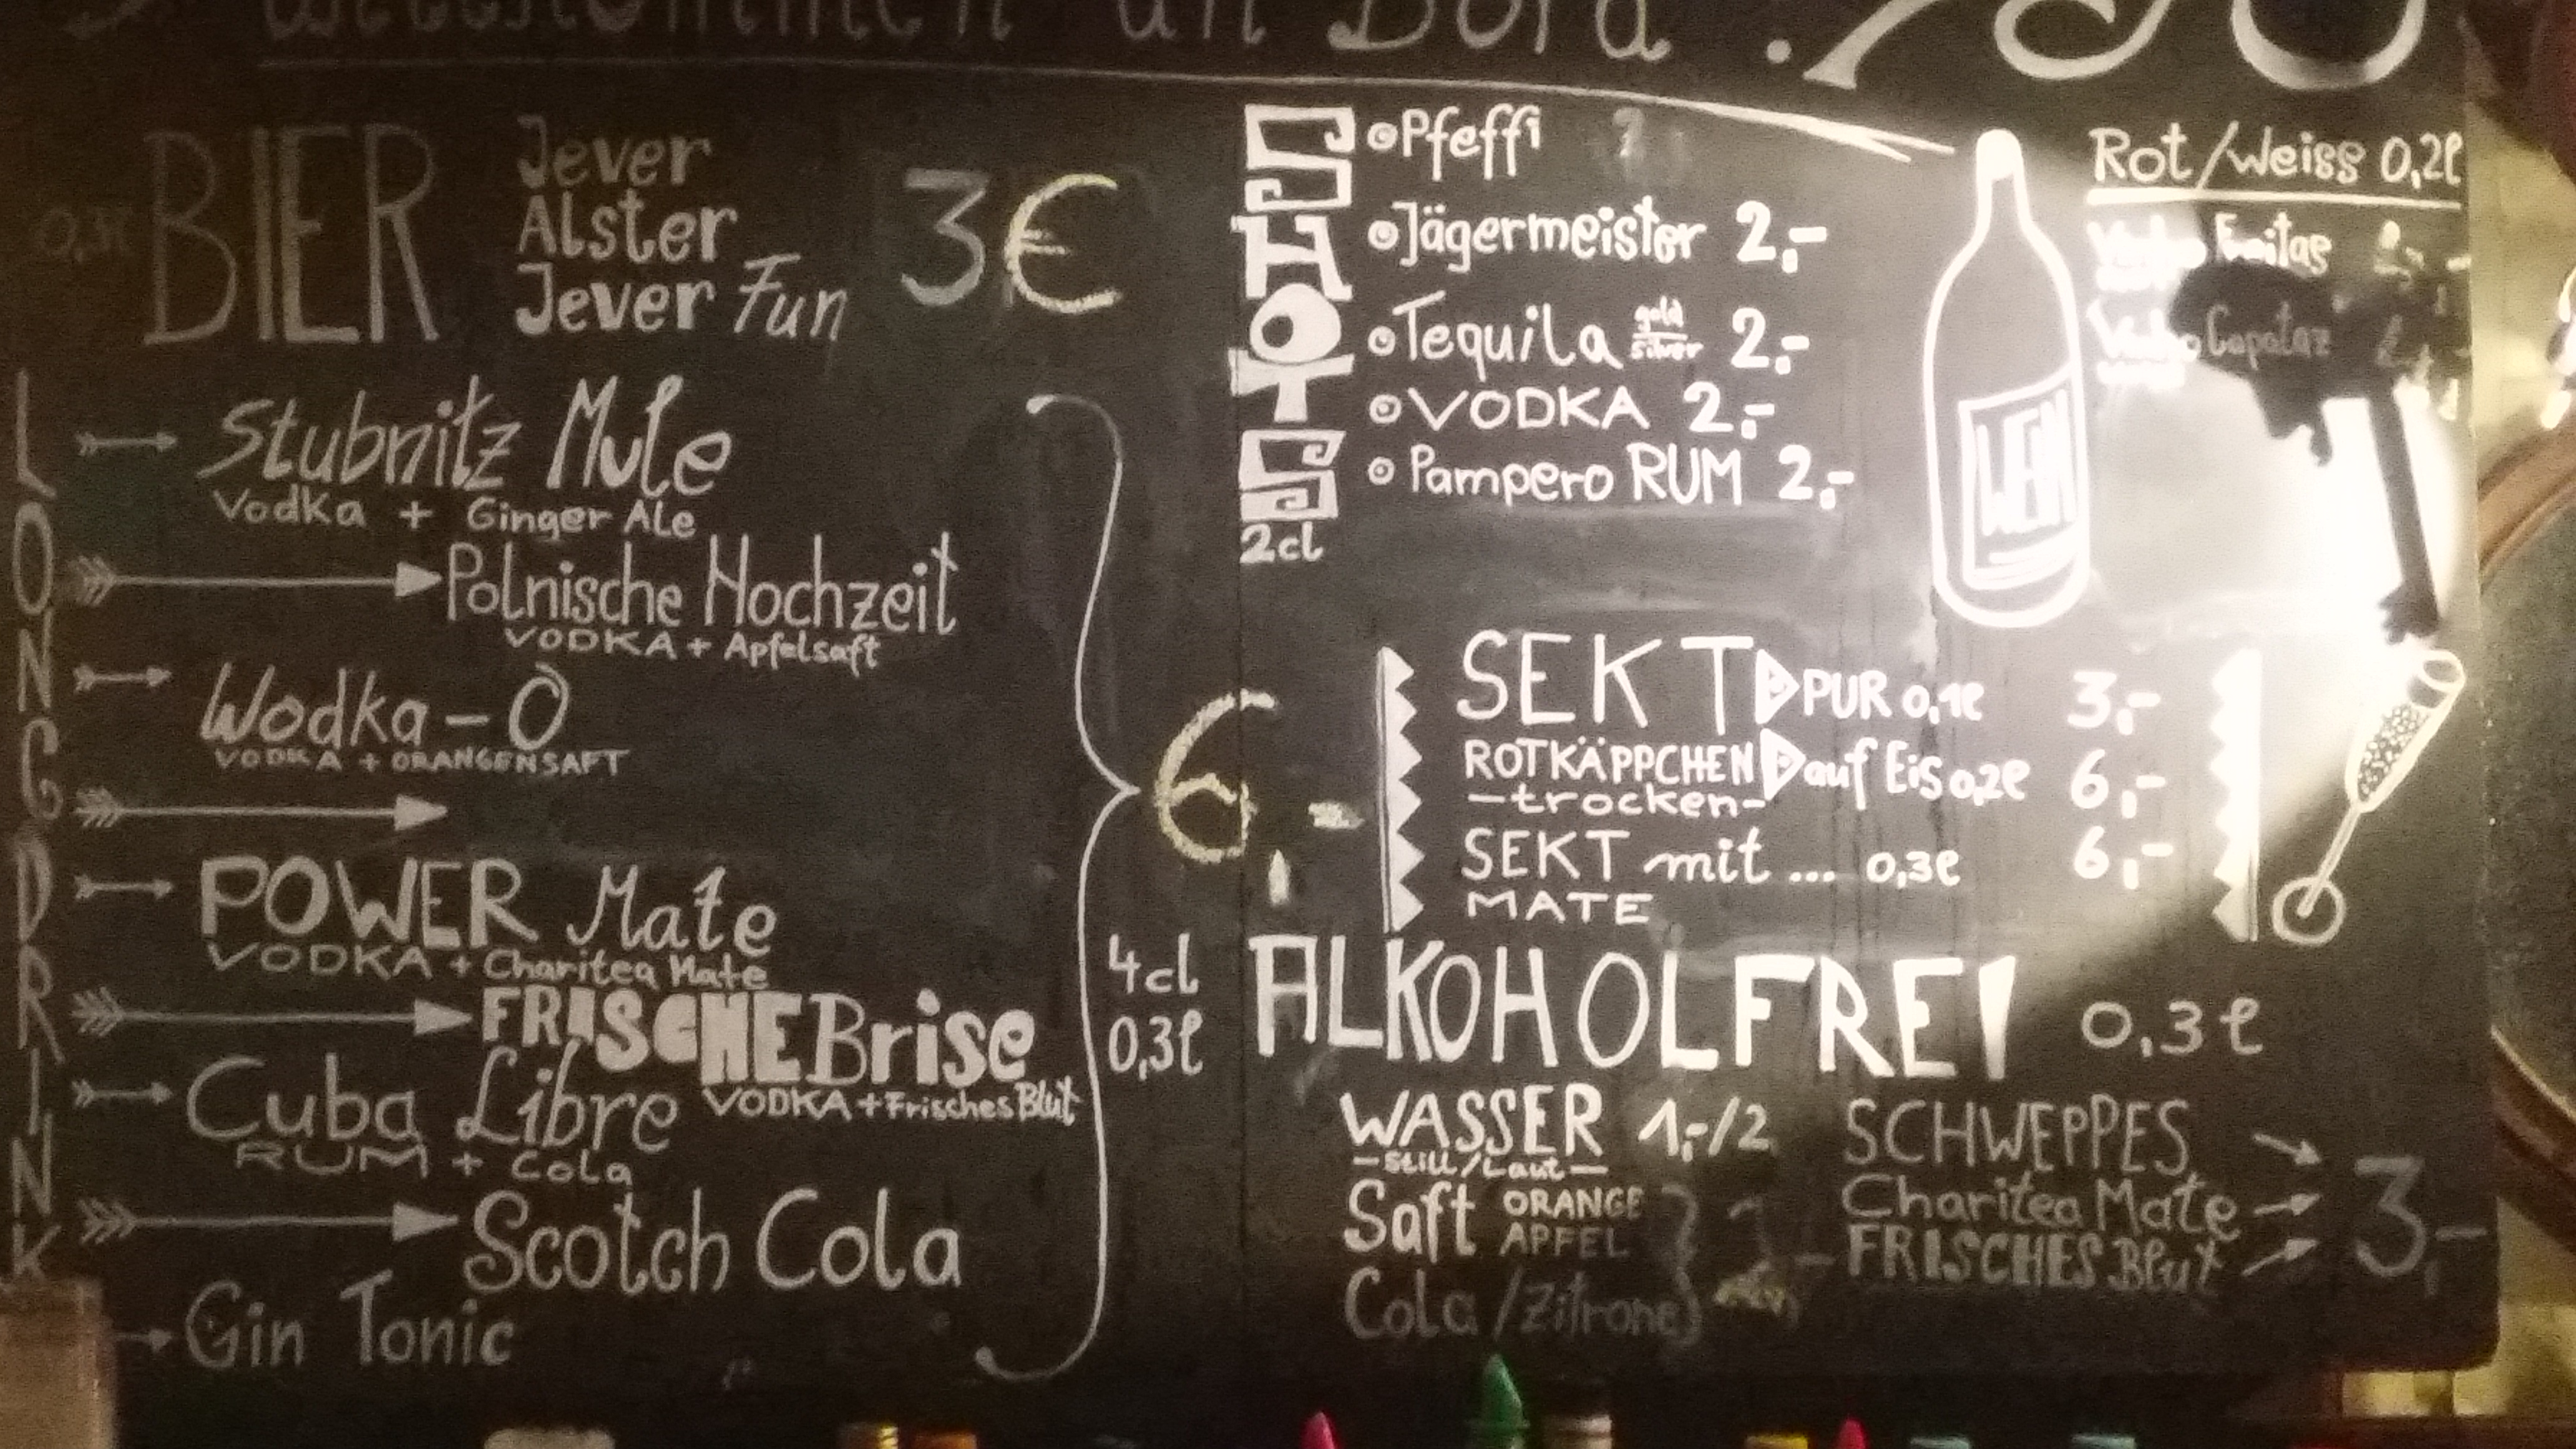 an Bord
BIER
Jever
Alster
Jever Fun
3€
LONGDRINK
Stubnitz Mule
Vodka + Ginger Ale
Polnische Hochzeit
VODKA + Apfelsaft
Wodka-O
VODKA + ORANGENSAFT
POWER Mate
VODKA + Charitea Mate
FRISCHE Brise
VODKA + Frisches Blut
Cuba Libre
RUM + Cola
Scotch Cola
Gin Tonic
6,-
4cl
0,3l
SHOTS
2cl
Pfeffi
Jägermeister 2,-
Tequila gold silver 2,-
VODKA 2,-
Pampero RUM 2,-
WEIN
Rot/Weiss 0,2l
SEKT PUR 0,1l 3,-
ROTKÄPPCHEN auf Eis 0,2l 6,-
-trocken-
SEKT mit... 0,3l 6,-
MATE
ALKOHOLFREI 0,3l
WASSER 1,-/2
-Still/Laut-
Saft ORANGE
APFEL
Cola/Zitrone
SCHWEPPES
Charitea Mate
FRISCHES Blut
3,-